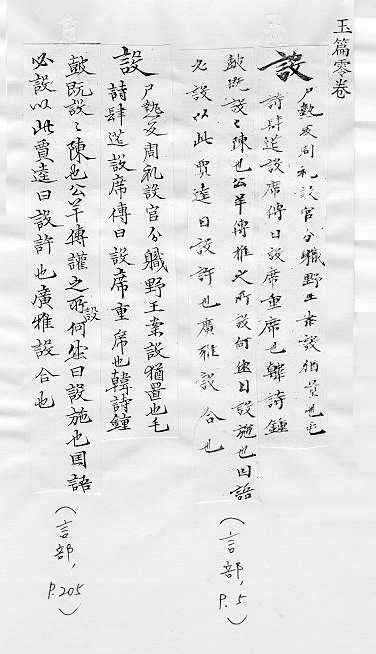 玉篇零卷
設 尸熱反周礼設官分職野王案設猶置也毛
詩肆莚設席傳曰設席重席也韓詩鍾
鼓既設〻陳也公羊傳權之所設何休曰設施也国語
必設以此賈逵曰設許也廣雅設合也
(言部, P.5)
設 尸熱反周礼設官分職野王案設猶置也毛
詩肆莚設席傳曰設席重席也韓詩鐘
鼓既設〻陳也公羊傳權之所設何休曰設施也国語
必設以此賈逵曰設許也廣雅設合也
(言部, P.205)